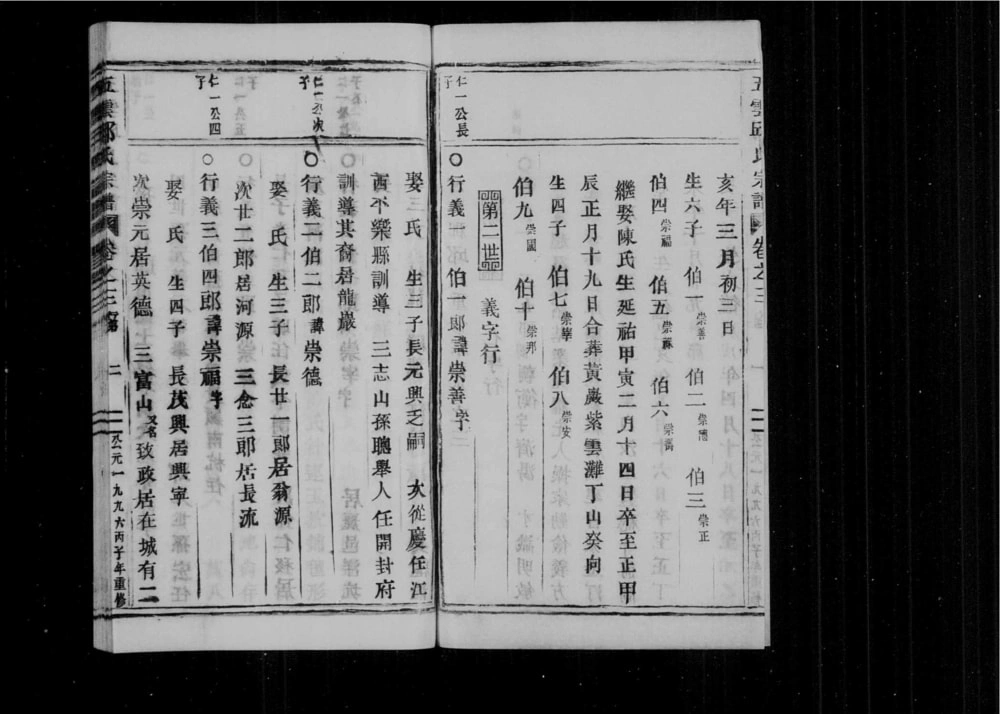 五雲邱氏宗譜 卷之三 公元一九九六丙子年重修
亥年三月初三日
生六子 伯一崇善 伯二崇德 伯三崇正
伯四崇福 伯五 伯六
繼娶陳氏生延祐甲寅二月十四日卒至正甲
辰正月十九日合葬黃巖紫雲灘丁山癸向
生四子 伯七崇寧 伯八崇安
伯九崇國 伯十崇邦
第二世 義字行
仁一公長子
○行義一伯一郎諱崇善字
娶三氏 生三子長元興乏嗣 次從慶任江
西不樂縣訓導 三志山孫聰舉人任開封府
訓導其裔居龍巖
仁一公次子
○行義二伯二郎諱崇德
娶 氏 生三子長廿一郎居翁源
次廿二郎居河源 三念三郎居長流
仁一公四子
○行義三伯四郎諱崇福字
娶 氏 生四子 長茂興居興寧
次崇元居英德 三富山又名致政居在城有二
五雲邱氏宗譜 卷之三 二 公元一九九六丙子年重修